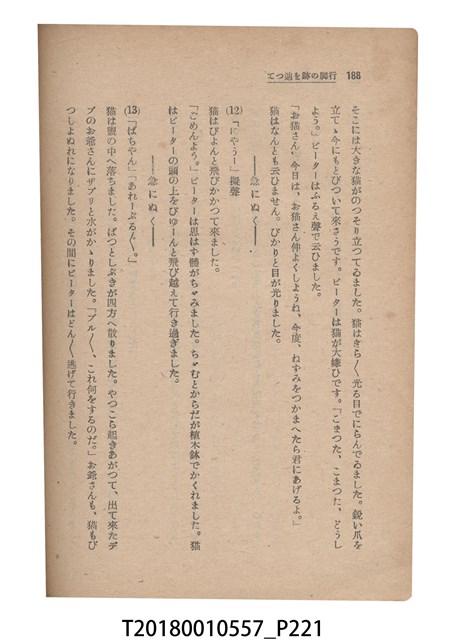 188 行脚の跡を追つて
そこには大きな猫がのつそり立つてゐました。猫はきら〳〵光る目でにらんでゐました。鋭い爪を
立てゝ今にもとびついて來さうです。ピーターは猫が大嫌ひです。「こまつた、こまつた、どうし
よう。」ピーターはふるえ聲で云ひました。
「お猫さん、今日は、お猫さん仲よくしようね、今度、ねずみをつかまへたら君にあげるよ。」
猫はなんとも云ひません。ぴかりと目が光りました。
――急にぬく――
(12)「にやうー」擬聲
猫はぴよんと飛びかかつて來ました。
「ごめんよう。」ピーターは思はず體がちゞみました。ちゞむとからだが植木鉢でかくれました。猫
はピーターの頭の上をぴゆーんと飛び越えて行き過ぎました。
――急にぬく――
(13)「ばちやん」「あれーぶるん〳〵。」
猫は罎の中へ落ちました。ぱつとしぶきが四方へ散りました。やつこら起きあがつて、出て來たデ
ブのお爺さんにザブリと水がかゝりました。「ブル〳〵、これ何をするのだ。」お爺さんも、猫もび
つしよぬれになりました。その間にピーターはどん〳〵逃げて行きました。
T20180010557_P221